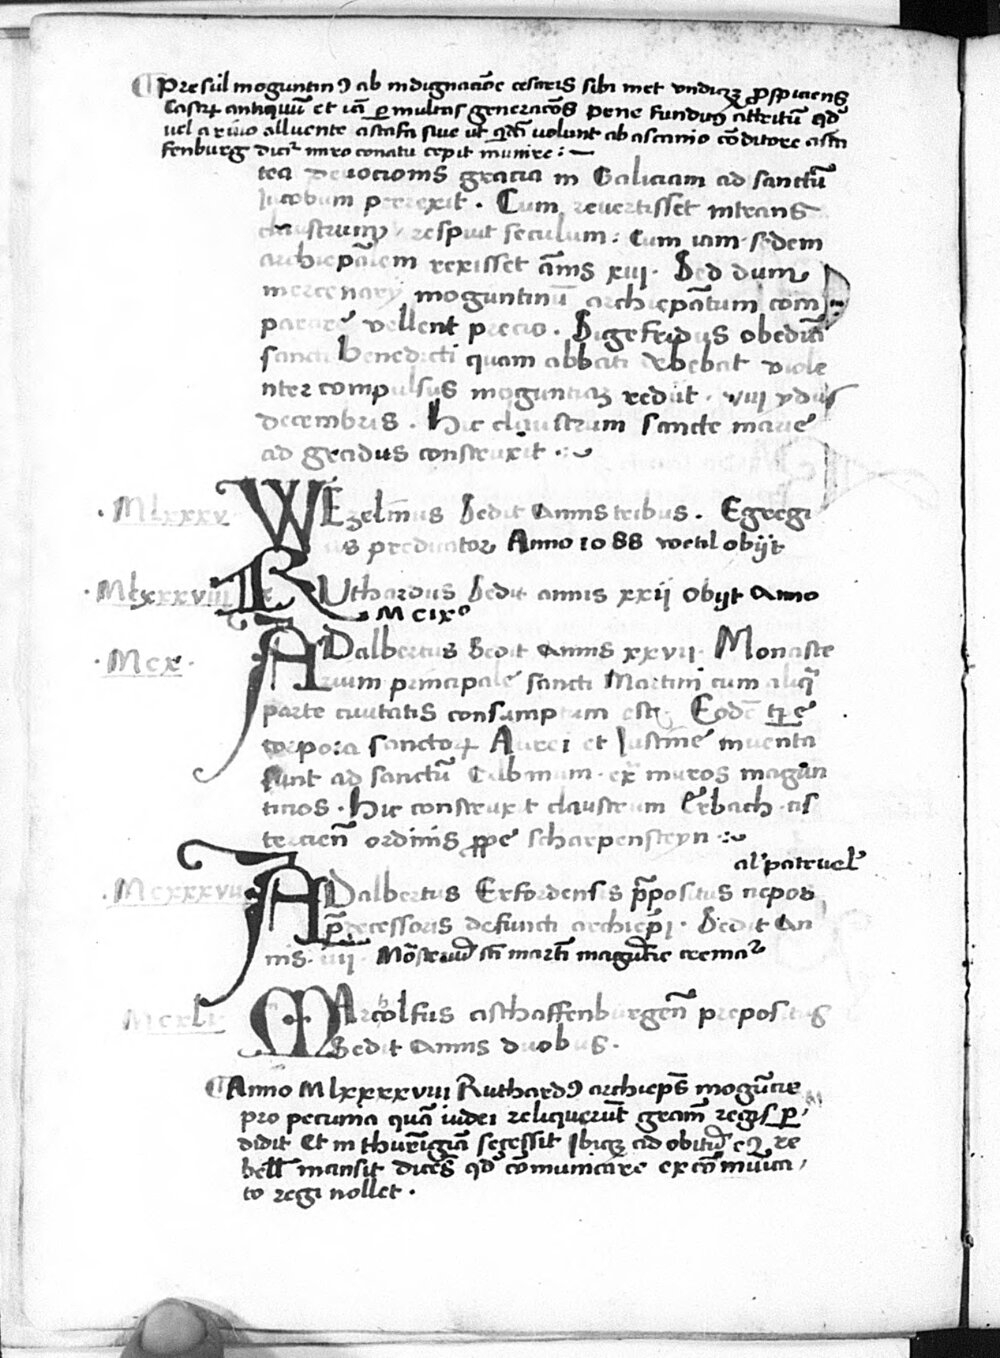 Presul moguntinꝰ ab indignac̄oe cesaris sibi met undiqꝫ ꝓspiciens
Castrꝝ antiquū et iā ꝑ multas generac̄oēs pene funditꝰ attritū qd̄
vel a rivo alluente ascafa sive ut qd̄ā volunt ab ascanio cōditore ascha
fenburg dicit᷑ miro conatu cepit munire :—
tea devocionis gracia in Galiciam ad sanctū
Jacobum perrexit . Cum revertisset intrans
claustrum respuit seculum : cum iam sedem
archiep̄atem rexisset ānis xiii . Sed dum
mercenarij moguntinū archiep̄atum com
parare vellent precio . Sigefridus obediā
sancti benedicti quam abbati debebat viole
nter compulsus mogunciaꝫ rediit . viii ydus
decembris . Hic claustrum sancte marie
ad gradus construxit .
. Mlxxxv . WEzelīnus Sedit Annis tribus . Egregi
us predicator Anno 1088 wezil obijt
. Mlxxxviii RUthardus Sedit annis xxii Obijt Anno
M cixº
. Mcx . ADalbertus Sedit Annis xxvii . Monaste
rium principale sancti Martini cum aliq̄
parte civitatis consumptum est . Eodē tp̄e
corpora sanctoꝝ Aurei et Justine inventa
sunt ad sanctū Albinum . ex̄ muros magun
tinos . Hic construxit claustrum Erbach . cis
tercien̄ ordinis ꝓpe scharpensteyn .
al' patruel'
. Mcxxxvii ADalbertus Erfordensis p̄positus nepos
p̄decessoris defuncti archiep̄i . Sedit An
nis . iiii . Mōsteriū sc̄i marti magūtie cremat᷑
Mcxli MArcolfus aschaffenburgen̄ prepositus
Sedit Annis duobus .
Anno Mlxxxxviii Ruthardꝰ archiep̄s mogūcie
pro pecunia quā iudei reliquerūt gram̄ regis ꝑ
didit Et in thuringiā secessit Ibiqꝫ ad obitū eiꝰ re
bell' mansit dicēs qd̄ cōmunicare excōmunica
to regi nollet .